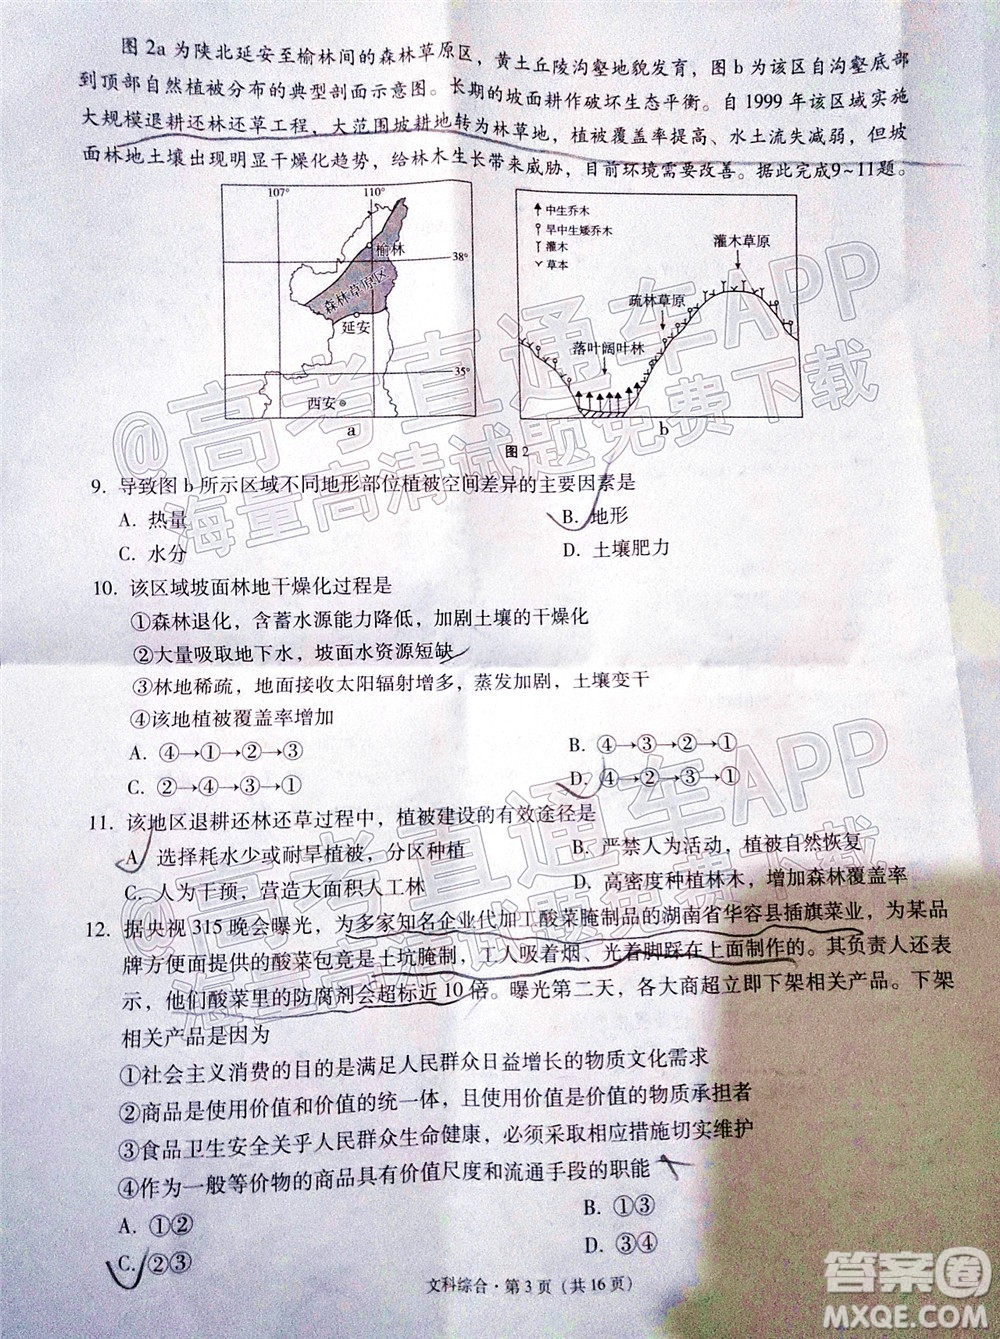 图 2a 为陕北延安至榆林间的森林草原区，黄土丘陵沟壑地貌发育，图 b 为该区自沟壑底部
到顶部自然植被分布的典型剖面示意图。长期的坡面耕作破坏生态平衡。自 1999 年该区域实施
大规模退耕还林还草工程，大范围坡耕地转为林草地，植被覆盖率提高、水土流失减弱，但坡
面林地土壤出现明显干燥化趋势，给林木生长带来威胁，目前环境需要改善。据此完成9~11题。
107° 110°
榆林
38°
森林草原区
延安
35°
西安
a
中生乔木
旱中生矮乔木
灌木
草本
灌木草原
疏林草原
落叶阔叶林
b
图 2
9. 导致图 b 所示区域不同地形部位植被空间差异的主要因素是
A. 热量 B. 地形
C. 水分 D. 土壤肥力
10. 该区域坡面林地干燥化过程是
①森林退化，含蓄水源能力降低，加剧土壤的干燥化
②大量吸取地下水，坡面水资源短缺
③林地稀疏，地面接收太阳辐射增多，蒸发加剧，土壤变干
④该地植被覆盖率增加
A. ④→①→②→③ B. ④→③→②→①
C. ②→④→③→① D. ④→②→③→①
11. 该地区退耕还林还草过程中，植被建设的有效途径是
A. 选择耗水少或耐旱植被，分区种植 B. 严禁人为活动，植被自然恢复
C. 人为干预，营造大面积人工林 D. 高密度种植林木，增加森林覆盖率
12. 据央视 315 晚会曝光，为多家知名企业代加工酸菜腌制品的湖南省华容县插旗菜业，为某品
牌方便面提供的酸菜包竟是土坑腌制，工人吸着烟、光着脚踩在上面制作的。其负责人还表
示，他们酸菜里的防腐剂会超标近 10 倍。曝光第二天，各大商超立即下架相关产品。下架
相关产品是因为
①社会主义消费的目的是满足人民群众日益增长的物质文化需求
②商品是使用价值和价值的统一体，使用价值是价值的物质承担者
③食品卫生安全关乎人民群众生命健康，必须采取相应措施切实维护
④作为一般等价物的商品具有价值尺度和流通手段的职能
A. ①② B. ①③
C. ②③ D. ③④
文科综合·第 3 页（共 16 页）
@高考直通车APP
海量高清试题免费下载
@高考直通车APP
海量高清试题免费下载
答案圈
MXQE.COM